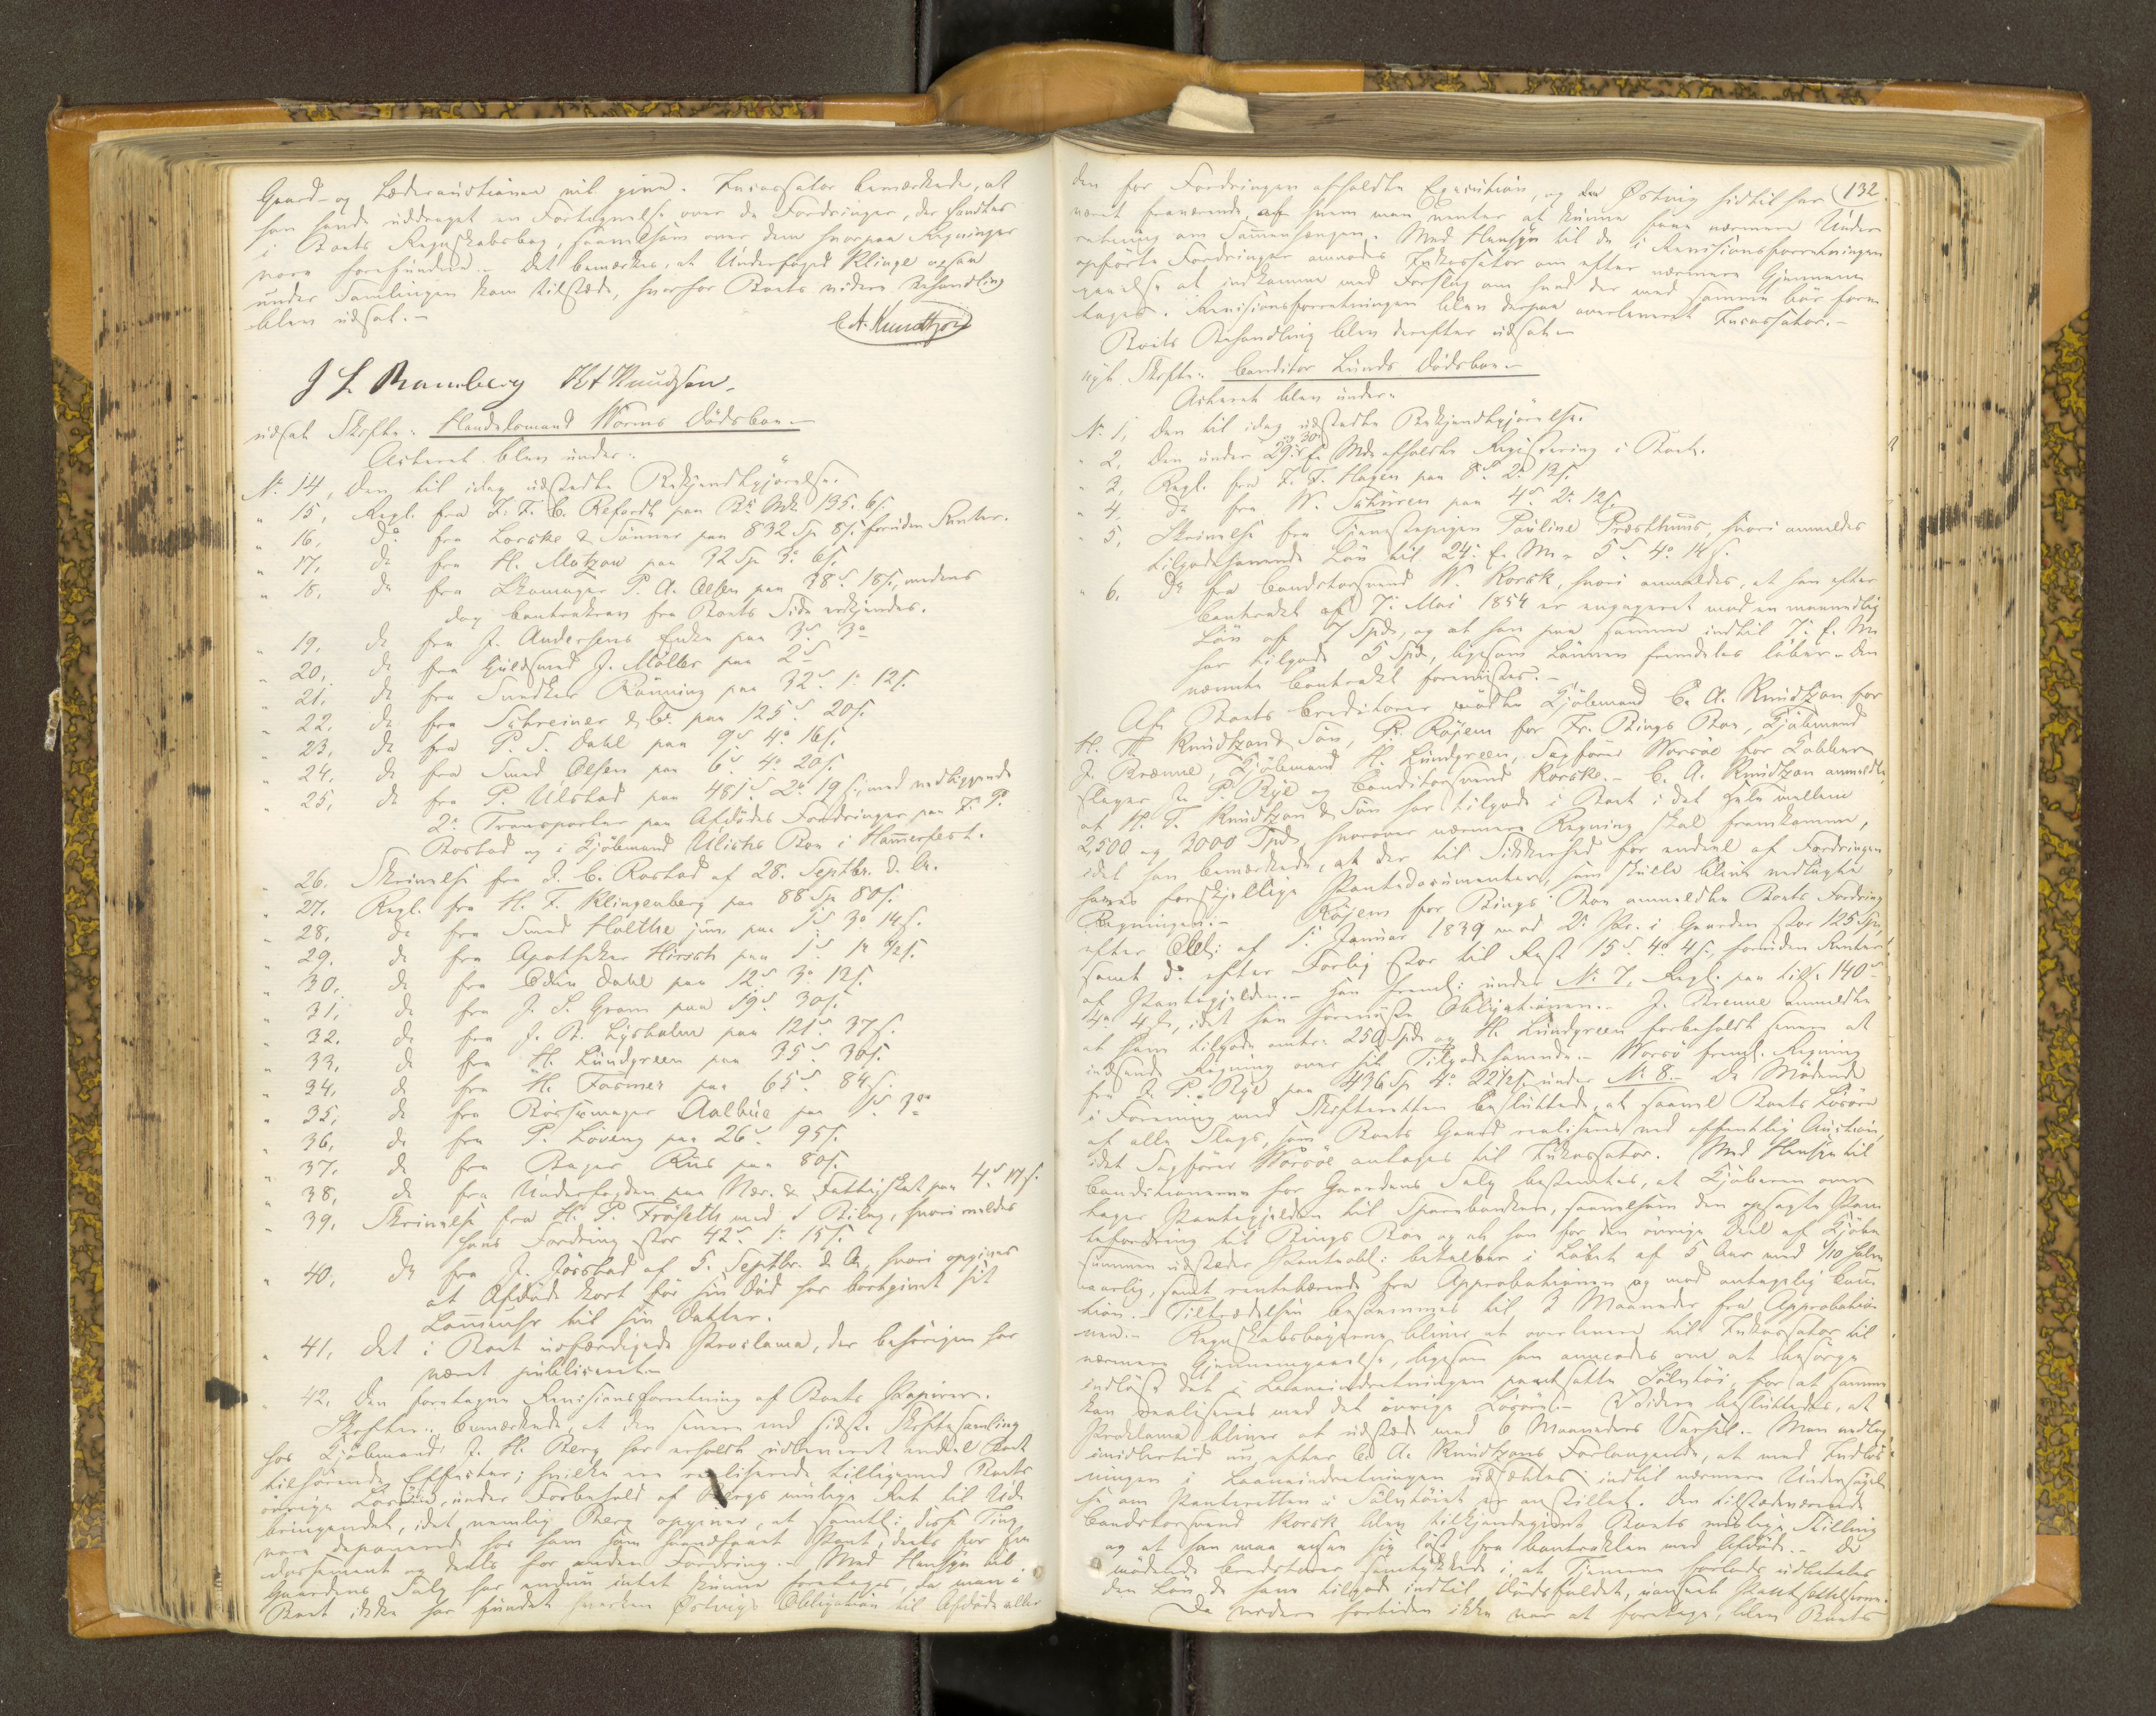 Gaard- og Løsøreauctionen vil give. Incassator bemærkede, at
han havde uddraget en Fortegnelse over de Fordringer, der fandtes
i Boets Regnskabsbog, saavelsom over dem hvorpaa Regninger
vare forefundne. Det bemærkes, at Underfoged Klinge ogsaa
under Samlingen kom tilstede, hvorfor Boets videre Behandling
blev udsat.-
C. A. Knudtzon
J L Bamberg Knudtzon.
udsat Skifte: Handelsmand Worms Dødsboe.-
Acteret blev under:
No. 14, den til idag udstedte Bekjendtgjørelse.
" 15, Regl. fra J. F. C. Refardt paa Bo Mk 135. 6 s.
" 16, do fra Lorske & Sønner paa 832 Sp 8 s. foruden Renter.
" 17, do fra H. Matzow paa 32 Sp 3o 6 s.
" 18, do fra Skomager P. A. Olsen paa 38 18 s., medens
dog Contrakten fra Boets Side erkjendes.
" 19, do fra J. Andersens Enke paa 3 3o
" 20, do fra Guldsmed J. Møller paa 2
" 21, do fra Snedker Rønning paa 32 1o 12 s.
" 22, do fra Schreiner & Co. paa 125 20 s.
" 23, do fra P. S. Dahl paa 9 4o 16 s.
" 24, do fra Smed Olsen paa 6 4o 20 s.
" 25, do fra P. Ulstad paa 481 2o 19 s., med vedliggende
2o Transporter paa Afdødes Fordringer paa F. P.
Rostad og i Kjøbmand Ulichs Boe i Hammerfest.
" 26. Skrivelse fra J. C. Rostad af 28. Septbr. d. A.
" 27. Regl. fra H. F. Klingenberg paa 88 Sp 80 s.
" 28, do fra Smed Holthe jun. paa 3o 14 s.
" 29. do fra Apotheker Hirsch paa
" 30, do fra Odin Dahl paa 12 3o 12 s.
" 31, do fra J. S. Gram paa 19 30 s.
" 32. do fra J. B. Lysholm paa 121 37 s.
" 33, do fra H. Lundgreen paa 35 30 s.
" 34, do fra H. Farmer paa 65 84 s.
" 35, do fra Børstemager Aalbue paa 3o
" 36, do fra P. Løveng paa 26 95 s.
" 37. do fra Bager Rus paa 80 s.
" 38, do fra Underfogden paa Nær. & Fattigskat paa 4 17 s.
" 39, Skrivelse fra H. P. Frøseth med 1 Bilag, hvori meldes
hans Fordring stor 42 1o 15 s.
" 40, do fra J. Jørstad af 5. Septbr. d. A., hvori opgives
at Afdøde kort før sin Død har bortgivet sit
Lommeuhr til sin Datter.
" 41, det i Boet udfærdigede Proclama, der behørigen har
været publiceret.
" 42, den foretagne Revisionsforretning af Boets Papirer.
Skifter: bemærkede at der senere end sidste Skiftesamling
hos Kjøbmand J. H. Berg har erholdt udleveret endel Boet
tilhørende Effecter; hvilke ere realiserede tilligemed Boets
øvrige Løsøre, under Forbehold af Bergs mulige Ret til Ud-
bringendet, idet nemlig Berg opgiver, at samtl: disse Ting
vare deponerede hos ham som haandfaaet Pant, deels for En-
dossement og deels for anden Fordring.- Med Hensyn til
Gaardens Salg har endnu intet kunne foretages, da man i
Boet ikke har fundet hverken Østvigs Obligation til Afdøde eller
132
den for Fordringen afholdte Execution, og da Østvig hidtil har
været fraværende, af hvem man venter at kunne faae nærmere Under-
retning om Sammenhængen. Med Hensyn til de i Revisionsforretningen
opførte Fordringer anmodes Inkassator om efter nærmere Gjennem-
gaaelse at indkomme med Forslag om hvad der med samme bør fore-
tages. Revisionsforretningen blev derpaa overleveret Incassator.-
Boets Behandling blev derefter udsat.-
nyt. Skifte: Conditor Lunds Dødsboe.-
Acteret blev under:
No. 1, den til idag udstedte Bekjendtgjørelse.
" 2, den under 29 og 30 f. Md. afholdte Registrering i Boet.
" 3, Regl. fra F. F. Hagen paa 8 2o 13 s.
" 4, do fra W. Schüren paa 4 2o 12 s.
" 5, Skrivelse fra Tjenestepigen Pauline Presthuus, hvori anmeldes
tilgodehavende Løn til 24. f. M. 5 4o 14 s.
" 6, do fra Conditorsvend W. Korsk, hvori anmeldes, at han efter
Contrakt af 7. Mai 1854 er engageret mod en maanedlig
Løn af 7 Spd., og at han paa samme indtil 7. f. M.
har tilgode 5 Spd., ligesom Lønnen fremdeles løber. Den
nævnte Contrakt foreviistes.-
Af Boets Creditorer mødte Kjøbmand C. A. Knudtzon for
H. Knudtzon & Søn, P. Röjem for Fr. Bings Boe, Kjøbmand
J. Brænne, Kjøbmand H. Lundgreen, Sagfører Worsöe for Kobber-
slager P. Rye og Conditorsvend Korsk.- C. A. Knudtzon anmeldte,
at H. Knudtzon & Søn har tilgode i Boet i det Hele mellem
2,500 og 3000 Spd., hvorover nærmere Regning skal fremkomme,
idet han bemærkede, at der til Sikkerhed for endeel af Fordringen
haves forskjellige Pantedocumenter, som skulle blive vedlagte
Regningen.- Röjem for Bings Boe anmeldte Boets Fordring
efter Obl: af 5. Januar 1839 mod 2. Pr. i Gaarden stor 125 Sp,
samt do efter Forlig stor til Rest 15 4o 4 s., foruden Renter
af Pantegjelden.- Han freml: under No. 7, Regl: paa tils. 140
4o 4 s., idet han foreviiste Obligationen.- J. Brenne anmeldte
at have tilgode omtr: 250 Spd. og H. Lundgreen forbeholdt senere at
indsende Regning over sit Tilgodehavende.- Worsö freml. Regning
fra P. Rye paa 436 Sp 4o 22½ s. under No 8.- De Mødende
i Forening med Skifteretten besluttede, at saavel Boets Løsøre
af alle Slags, som Boets Gaard realiseres ved offentlig Auction,
idet Sagfører Worsöe antages til Inkassator. Med Hensyn til
Conditionerne for Gaardens Salg bestemtes, at Kjøberen over-
tager Pantegjelden til Sparebanken, saavelsom den opsagte Pan-
tefordring til Bings Boe og at han for den øvrige Deel af Kjøbe-
summen udsteder Panteobl: betalbar i Løbet af 5 Aar med 1/10 halv-
aarlig, samt rentebærende fra Approbationen og mod antagelig Cau-
tion.- Tiltrædelsen bestemmes til 3 Maaneder fra Approbatio-
nen.- Regnskabsbøgerne bliver at overlevere til Inkassator til
nærmere Gjennemgaaelse, ligesom han anmodes om at besørge
indløst det i Laaneindretningen pantsatte Sølvtøi, for at samme
kan realiseres med det øvrige Løsøre.- Videre besluttedes, at
Proclama bliver at udstede med 6 Maaneders Varsel.- Man vedtog
imidlertid nu, efter C. A. Knudtzons Forlangende, at med Indløs-
ningen i Laaneindretningen udsættes indtil nærmere Undersøgel-
se om Panteretten i Sølvtøiet er anstillet. Den tilstedeværende
Conditorsvend Korsk blev tilkjendegivet Boets mislige Stilling
og at han maa ansee sig løst fra Contrakten med Afdøde.- De
mødende Creditorer samtykkede i, at Tjenerne forlods udbetales
den Løn de have tilgode indtil Dødsfaldet, uanseet Pantsættelserne.
Da videre fortiden ikke var at foretage, blev Boets